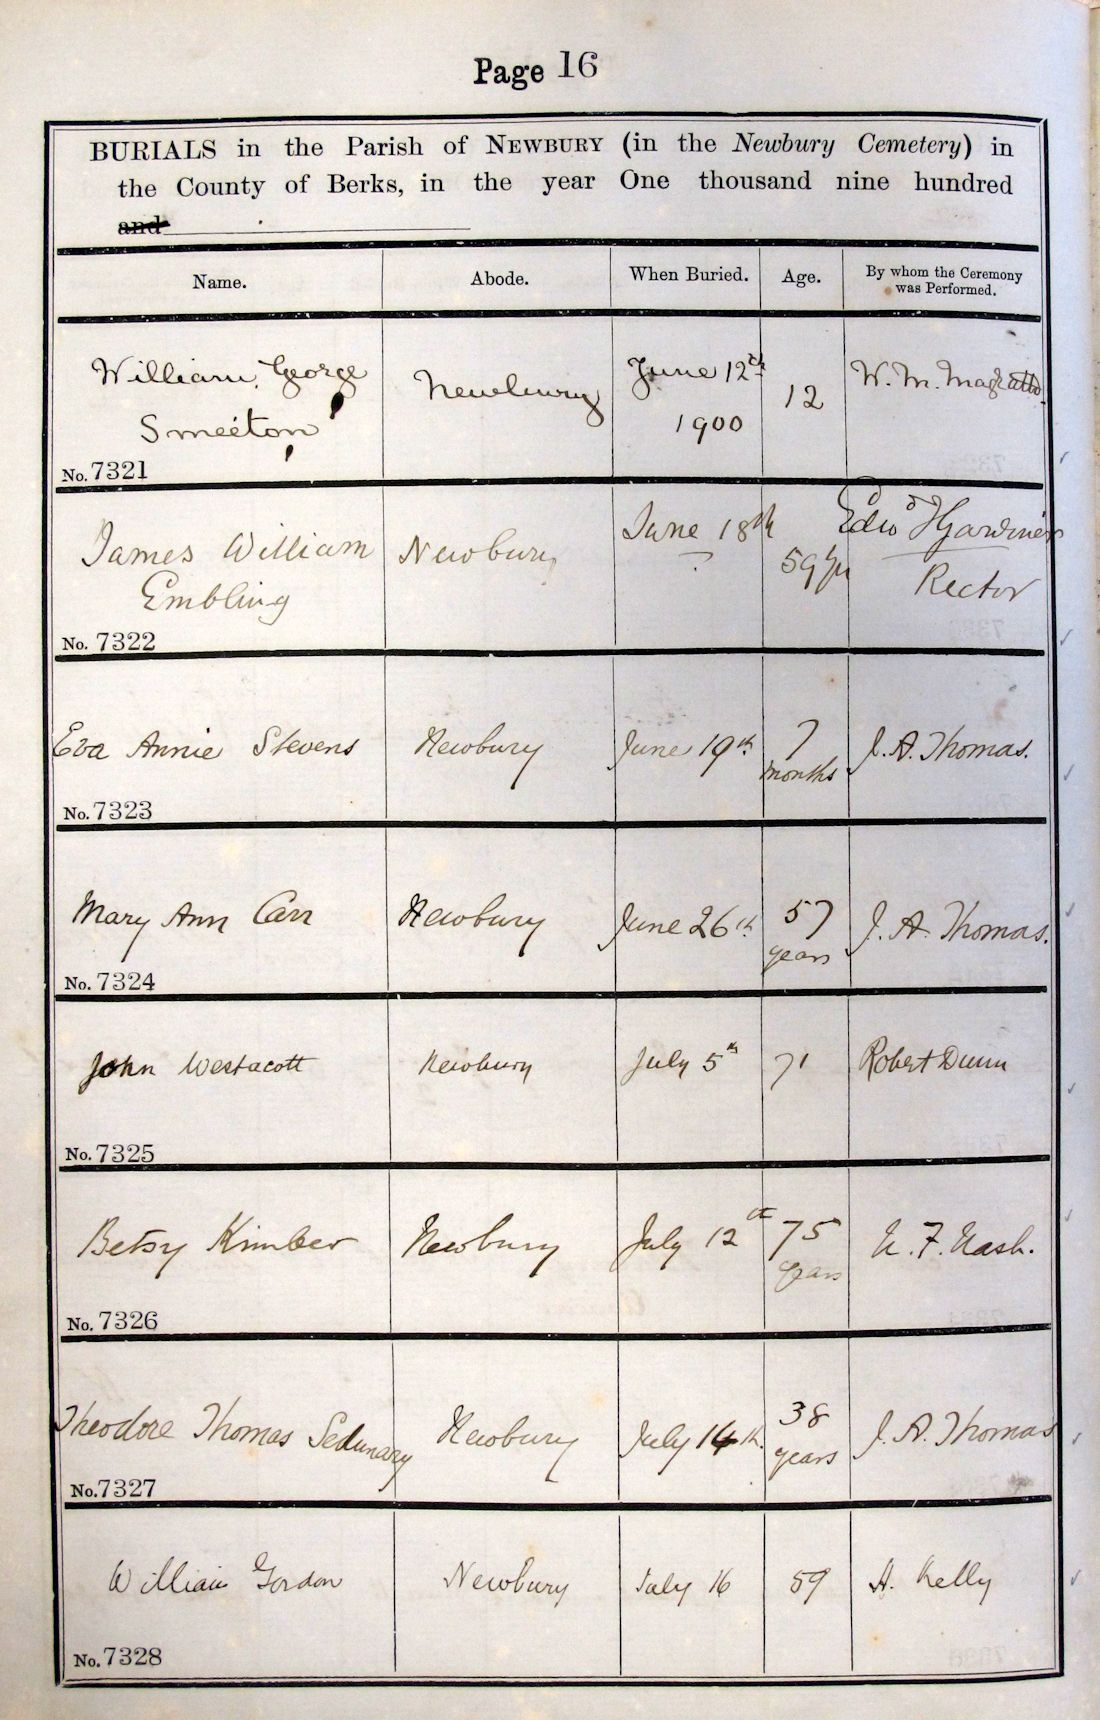 Page 16
BURIALS in the Parish of NEWBURY (in the Newbury Cemetery) in
the County of Berks, in the year One thousand nine hundred
and
Name. Abode. When Buried. Age. By whom the Ceremony
was Performed.
William George Newbury June 12th 12 W. M.
Smeeton 1900
No. 7321
James William Newbury June 18th 59 yrs Edwd Gardiner
Embling Rector
No. 7322
Eva Annie Stevens Newbury June 19th 7 J. A. Thomas.
months
No. 7323
Mary Ann Carr Newbury June 26th 57 J. A. Thomas.
years
No. 7324
John Westacott Newbury July 5th 71 Robert Dunn
No. 7325
Betsy Kimber Newbury July 12th 75 N. F. Nash.
years
No. 7326
Theodore Thomas Sedunary Newbury July 14th. 38 J. A. Thomas
years
No. 7327
William Gordon Newbury July 16 59 H. Kelly
No. 7328